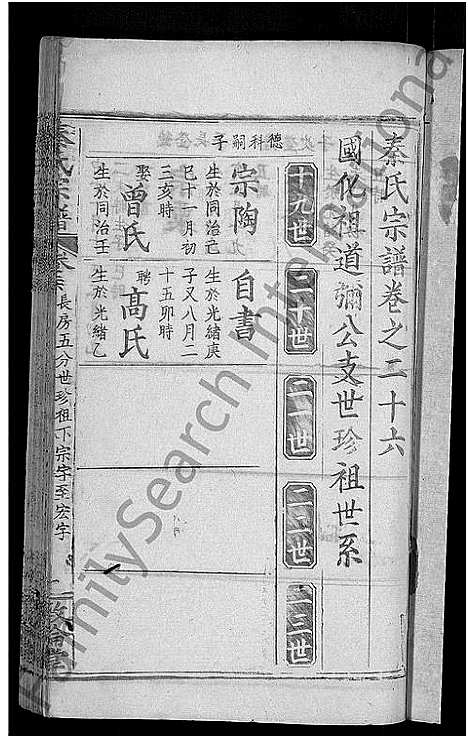 秦氏宗譜卷之二十六
國化祖道彌公支世珍祖世系
十九世
二十世
二一世
二二世
二三世
德科嗣子
宗陶
生於同治己
巳十一月初
三亥時
娶曾氏
生於同治壬
自書
生於光緒庚
子又八月二
十五卯時
聘高氏
生於光緒乙
秦氏宗譜
長房五分世珍祖下宗字至宏字
FamilySearch International